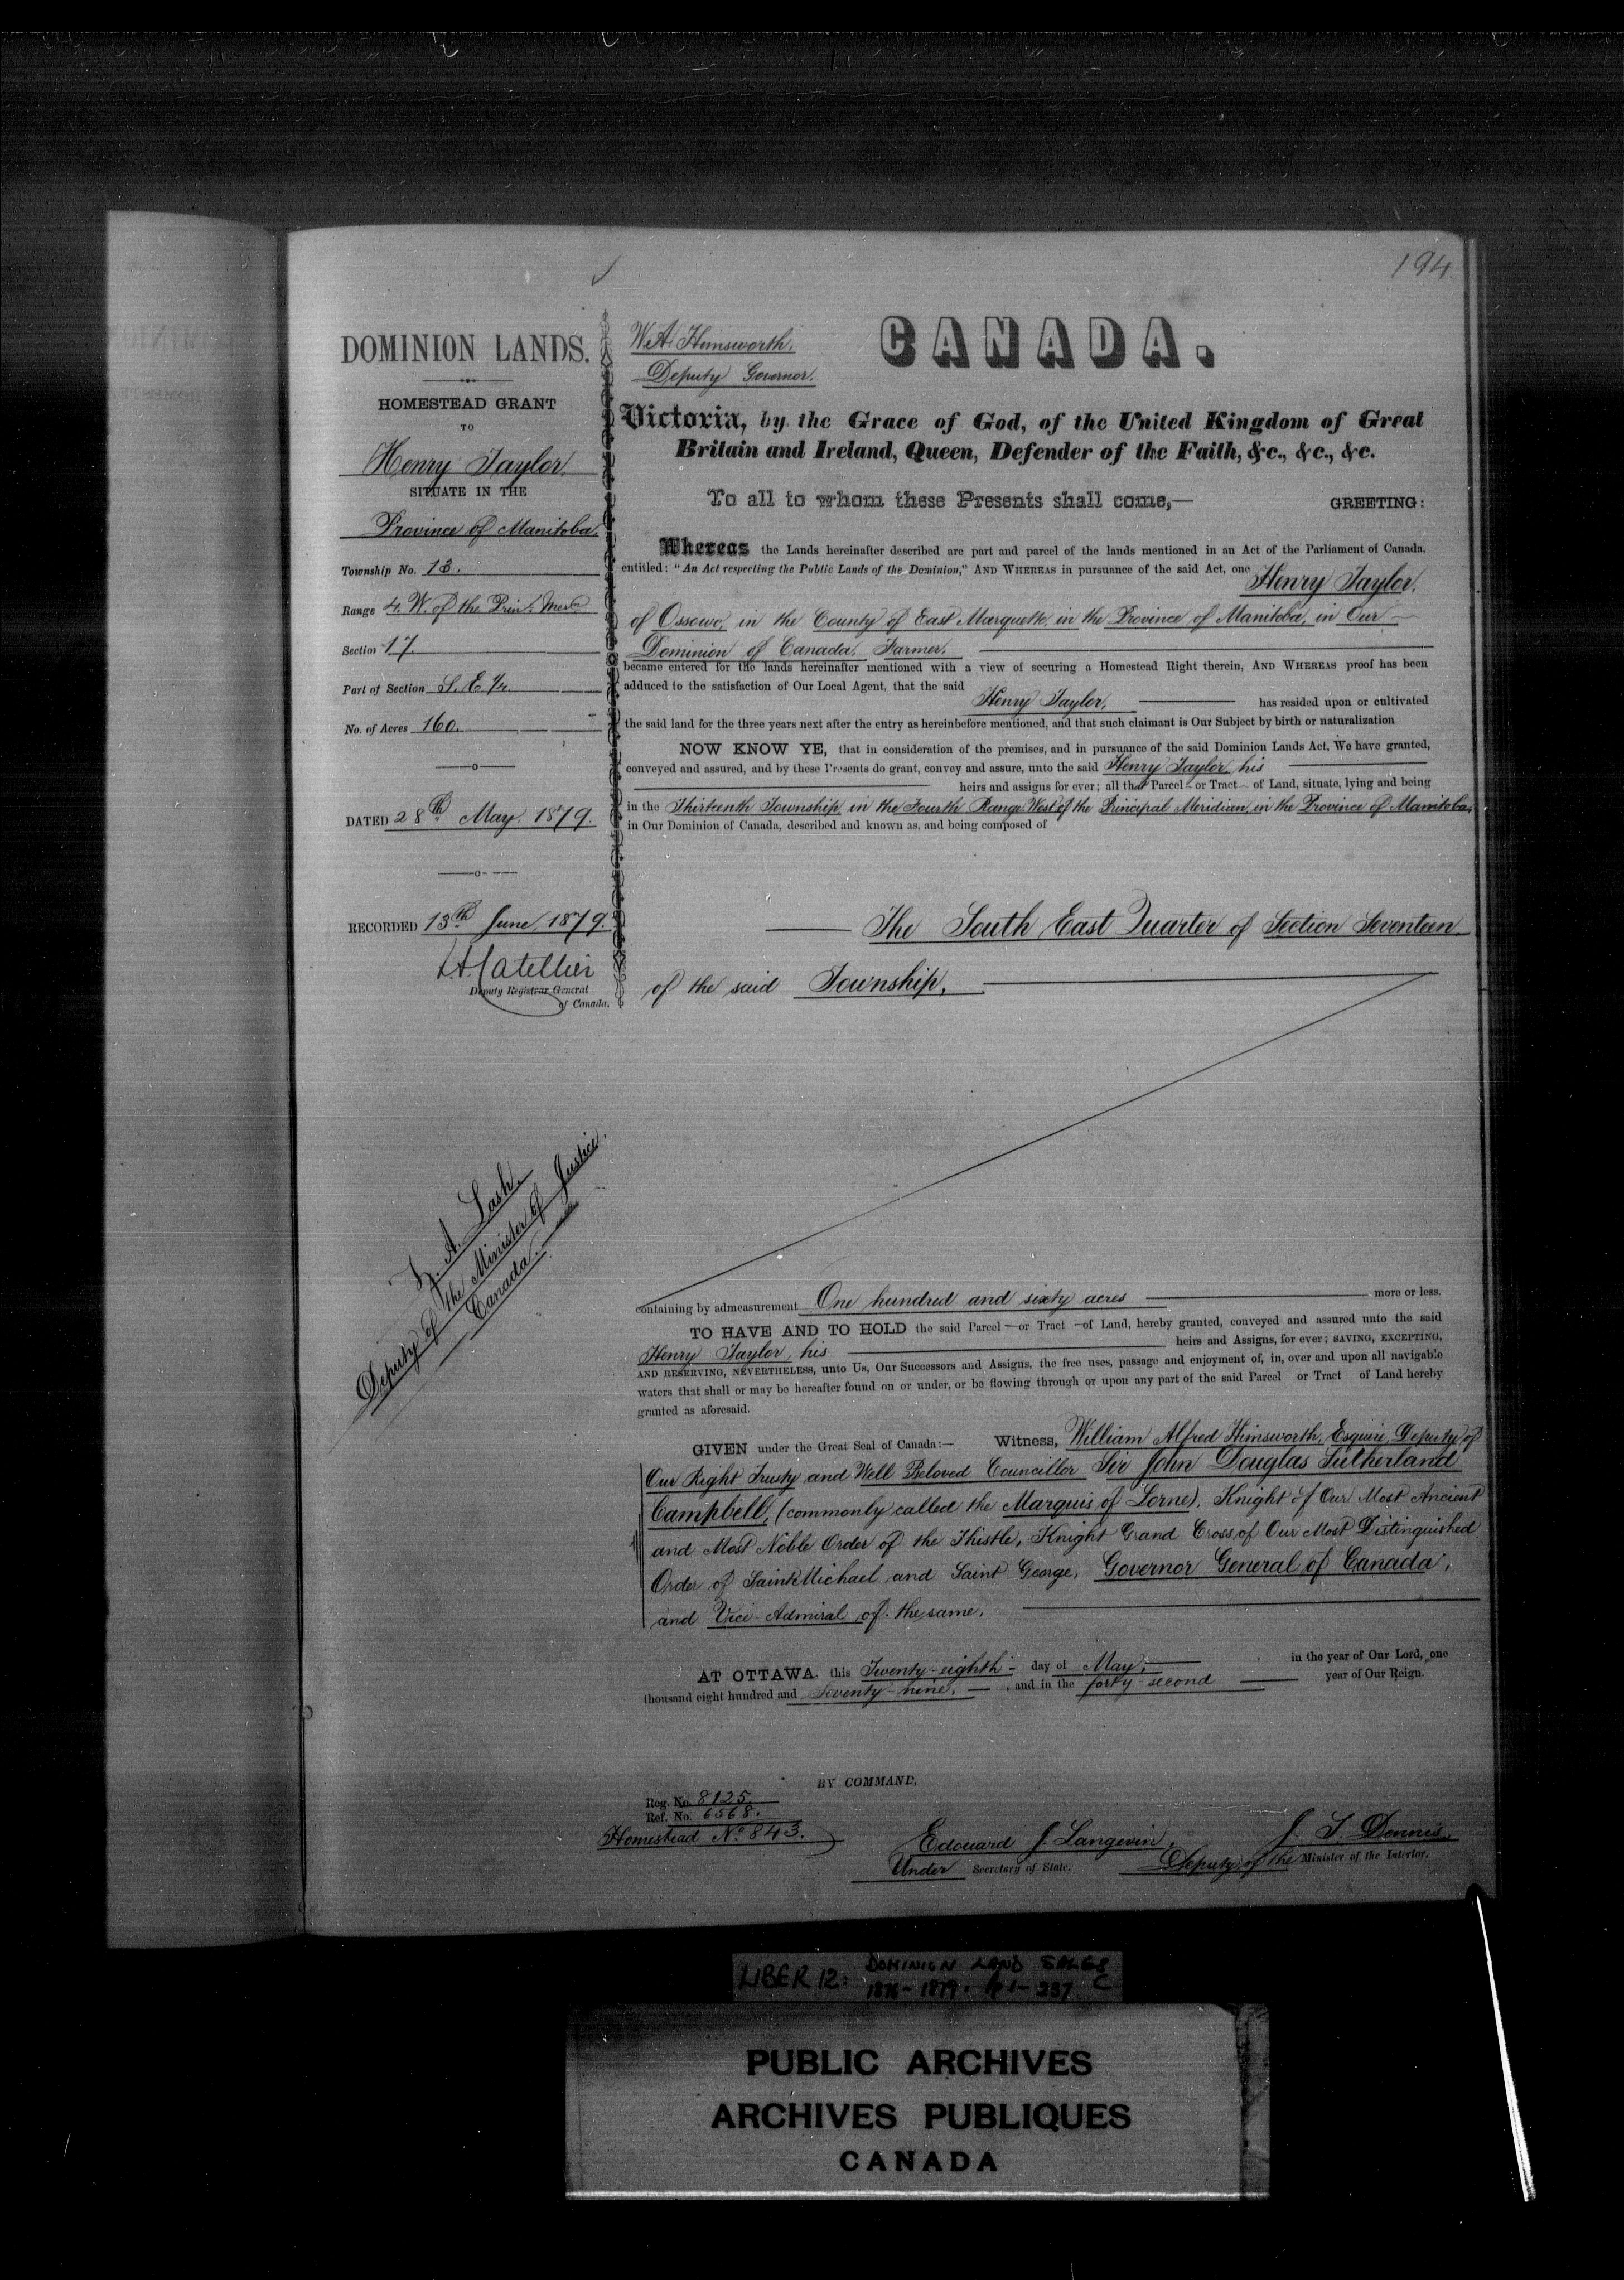 194.
DOMINION LANDS.
HOMESTEAD GRANT
TO
Henry Taylor,
SITUATE IN THE
Province of Manitoba.
Township No. 13.
Range 4. W. of the Prin. Merd.
Section 17.
Part of Section S. E. 1/4.
No. of Acres 160.
DATED 28th May. 1879.
RECORDED 13th June, 1879.
Deputy Registrar General
of Canada.
Z. A. Lash.
Deputy of the Minister of Justice.
Canada.
W. A. Himsworth.
Deputy Governor.
CANADA.
Victoria, by the Grace of God, of the United Kingdom of Great
Britain and Ireland, Queen, Defender of the Faith, &c., &c., &c.
To all to whom these Presents shall come,— GREETING:
Whereas the Lands hereinafter described are part and parcel of the lands mentioned in an Act of the Parliament of Canada,
entitled: "An Act respecting the Public Lands of the Dominion," AND WHEREAS in pursuance of the said Act, one Henry Taylor.
of Ossowo, in the County of East Marquette, in the Province of Manitoba, in Our
Dominion of Canada, Farmer,
became entered for the lands hereinafter mentioned with a view of securing a Homestead Right therein, AND WHEREAS proof has been
adduced to the satisfaction of Our Local Agent, that the said Henry Taylor, has resided upon or cultivated
the said land for the three years next after the entry as hereinbefore mentioned, and that such claimant is Our Subject by birth or naturalization
NOW KNOW YE, that in consideration of the premises, and in pursuance of the said Dominion Lands Act, We have granted,
conveyed and assured, and by these Presents do grant, convey and assure, unto the said Henry Taylor, his
heirs and assigns for ever; all that Parcel or Tract of Land, situate, lying and being
in the Thirteenth Township, in the Fourth Range West of the Principal Meridian, in the Province of Manitoba,
in Our Dominion of Canada, described and known as, and being composed of
The South East Quarter of Section Seventeen
of the said Township,
containing by admeasurement One hundred and sixty acres more or less.
TO HAVE AND TO HOLD the said Parcel or Tract of Land, hereby granted, conveyed and assured unto the said
Henry Taylor, his heirs and Assigns, for ever; SAVING, EXCEPTING,
AND RESERVING, NEVERTHELESS, unto Us, Our Successors and Assigns, the free uses, passage and enjoyment of, in, over and upon all navigable
waters that shall or may be hereafter found on or under, or be flowing through or upon any part of the said Parcel or Tract of Land hereby
granted as aforesaid.
GIVEN under the Great Seal of Canada:— Witness, William Alfred Himsworth, Esquire, Deputy of
Our Right Trusty and Well Beloved Councillor Sir John Douglas Sutherland
Campbell, (commonly called the Marquis of Lorne), Knight of Our Most Ancient
and Most Noble Order of the Thistle, Knight Grand Cross of Our Most Distinguished
Order of Saint Michael and Saint George, Governor General of Canada,
and Vice-Admiral of the same.
AT OTTAWA, this Twenty-eighth day of May, in the year of Our Lord, one
thousand eight hundred and seventy-nine, and in the forty-second year of Our Reign.
BY COMMAND,
Reg. No. 8125.
Ref. No. 6568.
Homestead No. 843.
Edouard J. Langevin,
Under Secretary of State.
J. S. Dennis.
Deputy of the Minister of the Interior.
LIBER 12: DOMINION LAND SALES
1876-1879. p 1-237 C
PUBLIC ARCHIVES
ARCHIVES PUBLIQUES
CANADA